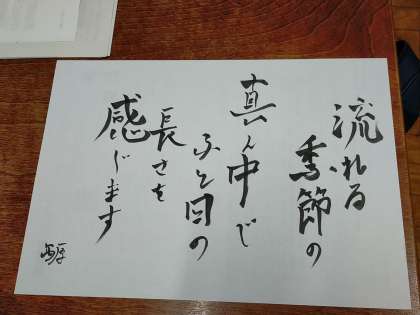 流れる
季節の
真ん中で
ふと日の
長さを
感じます